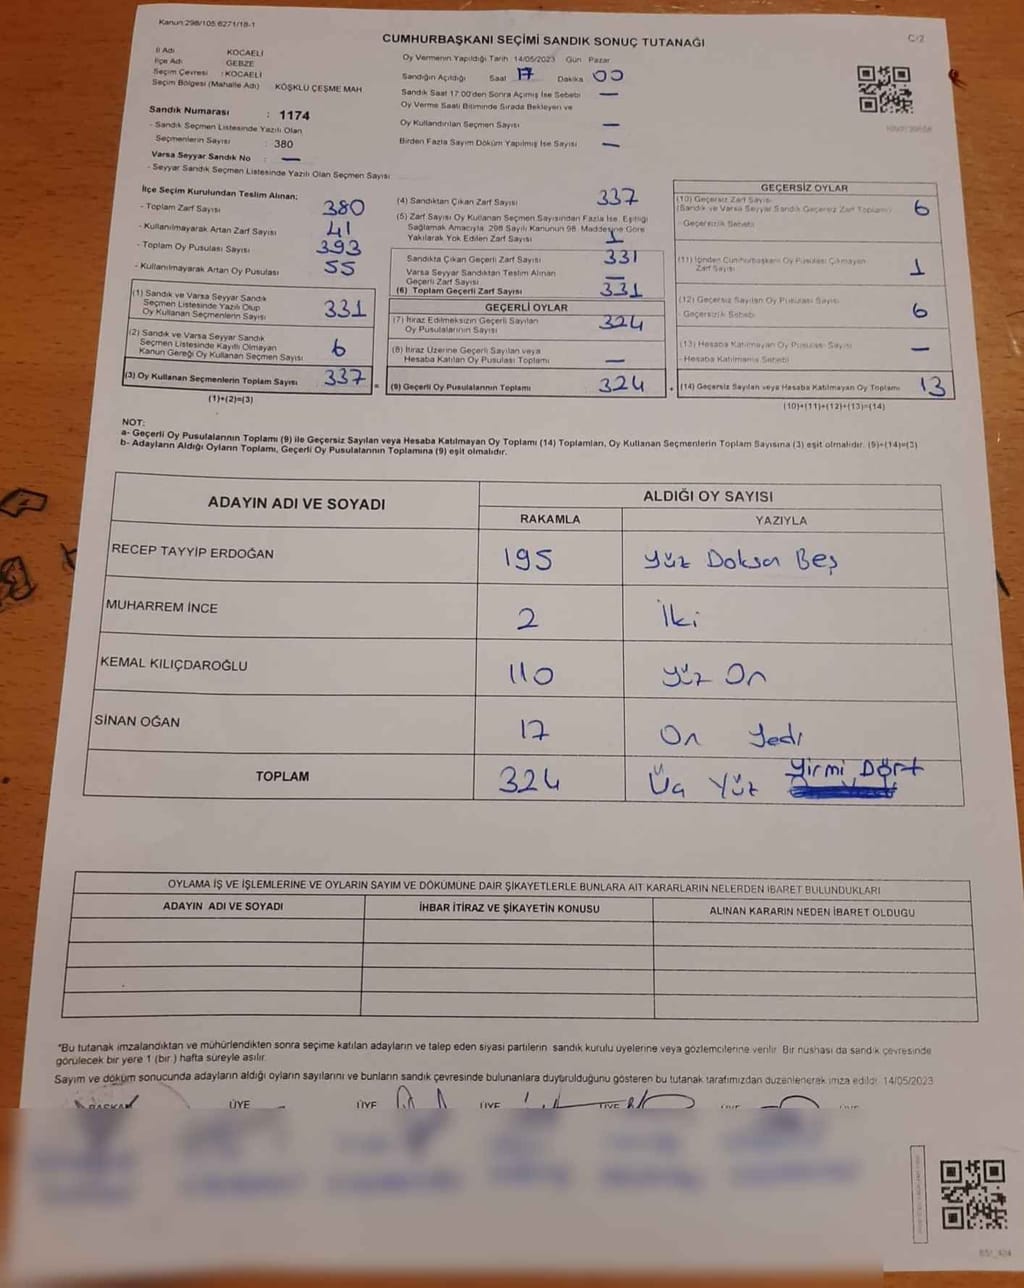 Kanun:298/105 6271/18-1
CUMHURBAŞKANI SEÇİMİ SANDIK SONUÇ TUTANAĞI
C/2
İl Adı KOCAELİ
İlçe Adı GEBZE
Seçim Çevresi : KOCAELİ
Seçim Bölgesi (Mahalle Adı) KÖŞKLÜ ÇEŞME MAH
Oy Vermenin Yapıldığı Tarih 14/05/2023 Gün Pazar
Sandığın Açıldığı Saat 17 Dakika 00
Sandık Saat 17:00'den Sonra Açımış İse Sebebi —
Oy Verme Saati Bitiminde Sırada Bekleyen ve
Oy Kullandırılan Seçmen Sayısı —
Birden Fazla Sayım Döküm Yapılmış İse Sayısı —
Sandık Numarası : 1174
- Sandık Seçmen Listesinde Yazılı Olan
Seçmenlerin Sayısı : 380
Varsa Seyyar Sandık No : —
- Seyyar Sandık Seçmen Listesinde Yazılı Olan Seçmen Sayısı
İlçe Seçim Kurulundan Teslim Alınan;
- Toplam Zarf Sayısı 380
- Kullanılmayarak Artan Zarf Sayısı 41
- Toplam Oy Pusulası Sayısı 393
- Kullanılmayarak Artan Oy Pusulası 55
(1) Sandık ve Varsa Seyyar Sandık
Seçmen Listesinde Yazılı Olup
Oy Kullanan Seçmenlerin Sayısı 331
(2) Sandık ve Varsa Seyyar Sandık
Seçmen Listesinde Kayıtlı Olmayan
Kanun Gereği Oy Kullanan Seçmen Sayısı 6
(3) Oy Kullanan Seçmenlerin Toplam Sayısı 337
(1)+(2)=(3)
(4) Sandıktan Çıkan Zarf Sayısı 337
(5) Zarf Sayısı Oy Kullanan Seçmen Sayısından Fazla İse, Eşitliği
Sağlamak Amacıyla 298 Sayılı Kanunun 98. Maddesine Göre
Yakılarak Yok Edilen Zarf Sayısı 1
Sandıkta Çıkan Geçerli Zarf Sayısı 331
Varsa Seyyar Sandıktan Teslim Alınan
Geçerli Zarf Sayısı —
(6) Toplam Geçerli Zarf Sayısı 331
GEÇERLİ OYLAR
(7) İtiraz Edilmeksizin Geçerli Sayılan
Oy Pusulalarının Sayısı 324
(8) İtiraz Üzerine Geçerli Sayılan veya
Hesaba Katılan Oy Pusulası Toplamı —
= (9) Geçerli Oy Pusulalarının Toplamı 324
GEÇERSİZ OYLAR
(10) Geçersiz Zarf Sayısı
(Sandık ve Varsa Seyyar Sandık Geçersiz Zarf Toplamı) 6
- Geçersizlik Sebebi
(11) İçinden Cumhurbaşkanı Oy Pusulası Çıkmayan
Zarf Sayısı 1
(12) Geçersiz Sayılan Oy Pusulası Sayısı
- Geçersizlik Sebebi 6
(13) Hesaba Katılmayan Oy Pusulası Sayısı —
- Hesaba Katılmama Sebebi
+ (14) Geçersiz Sayılan veya Hesaba Katılmayan Oy Toplamı 13
(10)+(11)+(12)+(13)=(14)
NOT:
a- Geçerli Oy Pusulalarının Toplamı (9) ile Geçersiz Sayılan veya Hesaba Katılmayan Oy Toplamı (14) Toplamları, Oy Kullanan Seçmenlerin Toplam Sayısına (3) eşit olmalıdır. (9)+(14)=(3)
b- Adayların Aldığı Oyların Toplamı, Geçerli Oy Pusulalarının Toplamına (9) eşit olmalıdır.
ADAYIN ADI VE SOYADI ALDIĞI OY SAYISI
RAKAMLA YAZIYLA
RECEP TAYYİP ERDOĞAN 195 Yüz Doksan Beş
MUHARREM İNCE 2 İki
KEMAL KILIÇDAROĞLU 110 Yüz On
SİNAN OĞAN 17 On Yedi
TOPLAM 324 Üç Yüz Yirmi Dört
OYLAMA İŞ VE İŞLEMLERİNE VE OYLARIN SAYIM VE DÖKÜMÜNE DAİR ŞİKAYETLERLE BUNLARA AİT KARARLARIN NELERDEN İBARET BULUNDUKLARI
ADAYIN ADI VE SOYADI İHBAR İTİRAZ VE ŞİKAYETİN KONUSU ALINAN KARARIN NEDEN İBARET OLDUĞU
"Bu tutanak imzalandıktan ve mühürlendikten sonra seçime katılan adayların ve talep eden siyasi partilerin sandık kurulu üyelerine veya gözlemcilerine verilir. Bir nushası da sandık çevresinde
görülecek bir yere 1 (bir) hafta süreyle asılır.
Sayım ve döküm sonucunda adayların aldığı oyların sayılarını ve bunların sandık çevresinde bulunanlara duyurulduğunu gösteren bu tutanak tarafımızdan düzenlenerek imza edildi. 14/05/2023
BAŞKAN ÜYE ÜYE ÜYE ÜYE ÜYE ÜYE